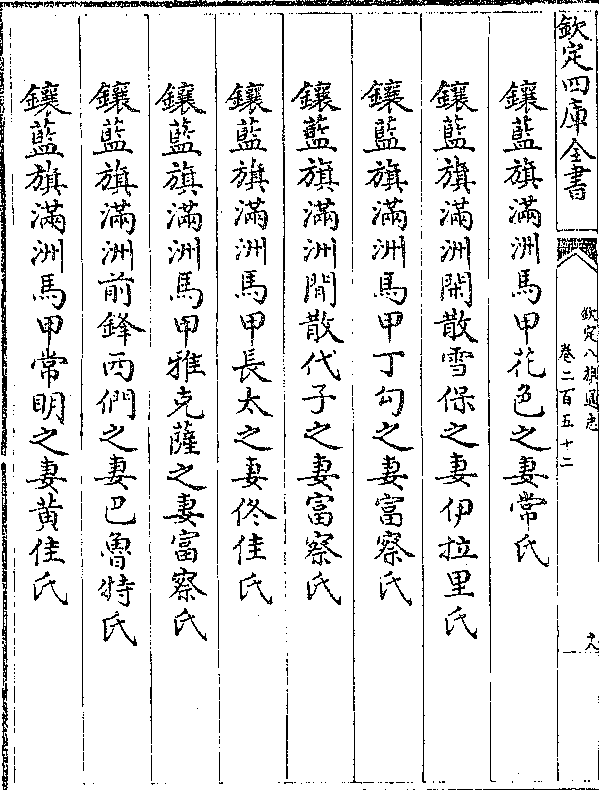 欽定四庫全書
欽定八旗通志
卷二百五十二
十八
鑲藍旗滿洲馬甲花色之妻常氏
鑲藍旗滿洲閑散雪保之妻伊拉里氏
鑲藍旗滿洲馬甲丁勾之妻富察氏
鑲藍旗滿洲閒散代子之妻富察氏
鑲藍旗滿洲馬甲長太之妻佟佳氏
鑲藍旗滿洲馬甲雅克薩之妻富察氏
鑲藍旗滿洲前鋒西們之妻巴魯特氏
鑲藍旗滿洲馬甲常明之妻黃佳氏